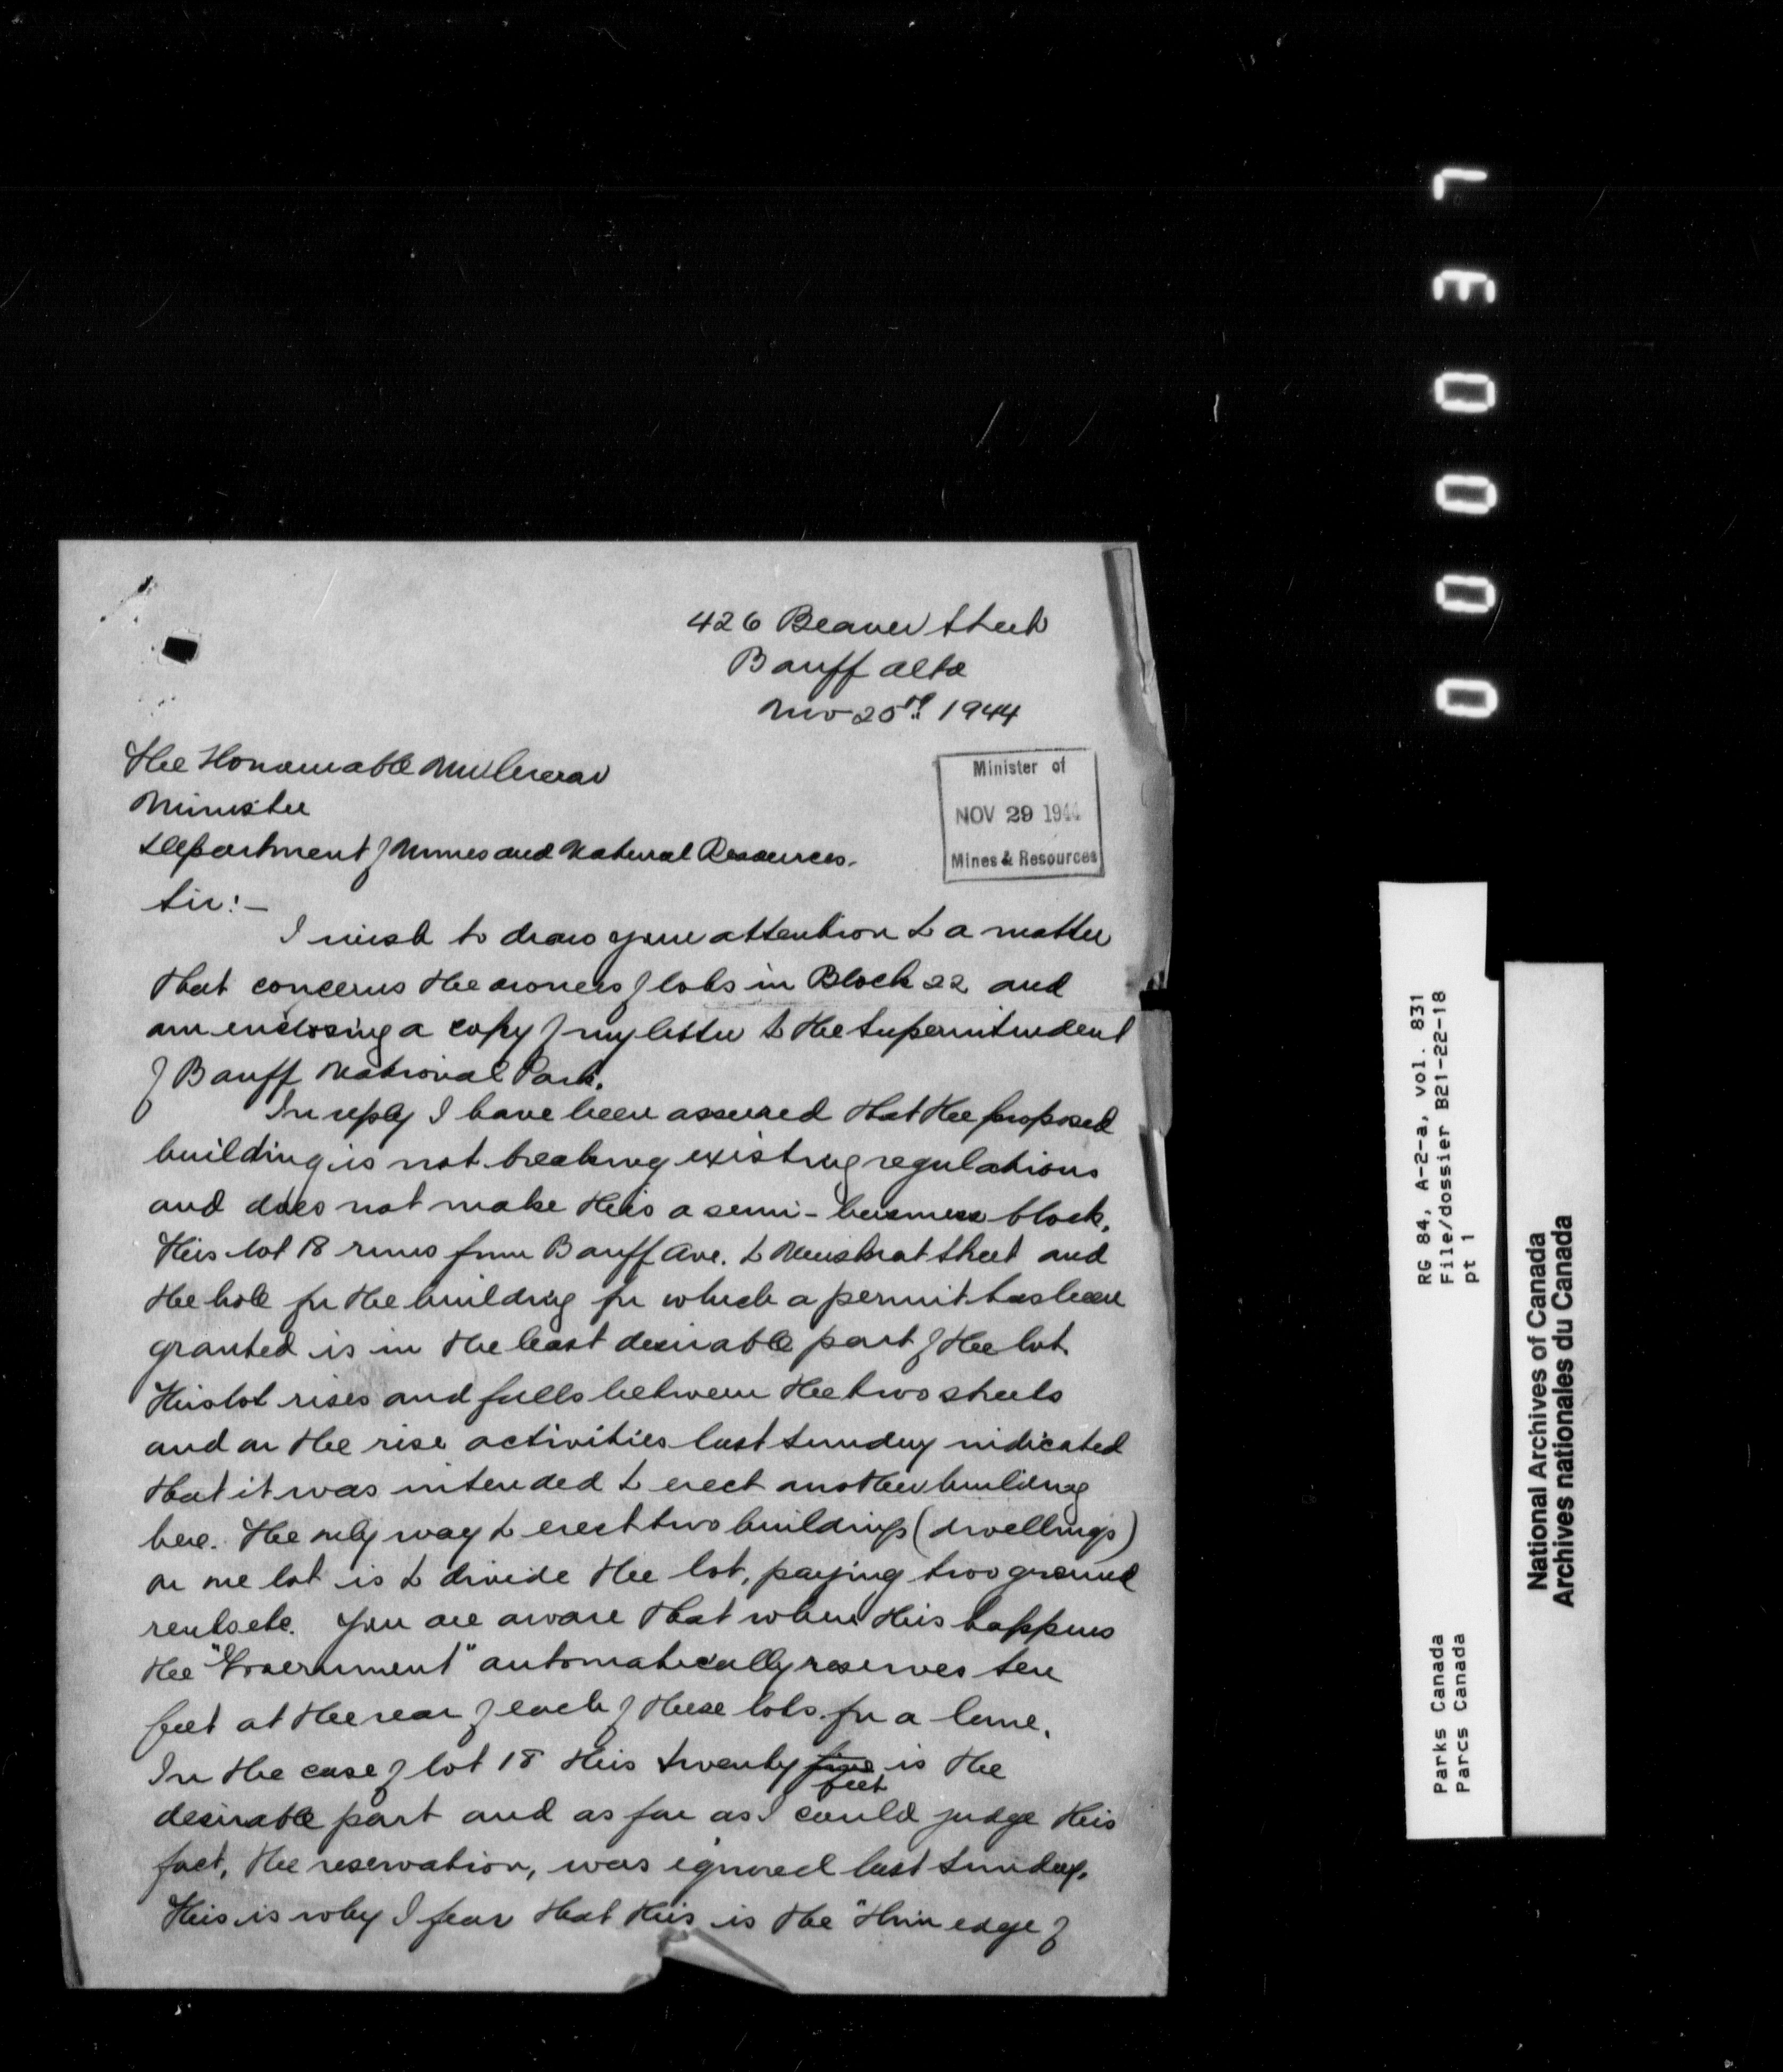 426 Beaver Street
Banff Alta
Nov 25th 1944
The Honourable Mr Crerar
Minister
Department of Mines and Natural Resources.
Minister of
NOV 29 1944
Mines & Resources
Sir:-
I wish to draw your attention to a matter
that concerns the owners of lots in Block 22 and
am enclosing a copy of my letter to the Superintendent
of Banff National Park.
In reply I have been assured that the proposed
building is not breaking existing regulations
and does not make this a semi-business block.
This lot 18 runs from Banff Ave. to Muskrat Street and
the hole for the building for which a permit has been
granted is in the least desirable part of the lot.
This lot rises and falls between the two streets
and on the rise activities last Sunday indicated
that it was intended to erect another building
here. The only way to erect two buildings (dwellings)
on one lot is to divide the lot, paying two ground
rents etc. You are aware that when this happens
the "Government" automatically reserves ten
feet at the rear of each of these lots for a lane.
In the case of lot 18 this twenty five is the
feet
desirable part and as far as I could judge this
fact, the reservation, was ignored last Sunday.
This is why I fear that this is the "thin edge of
000037
RG 84, A-2-a, vol. 831
File/dossier B21-22-18
pt 1
Parks Canada
Parcs Canada
National Archives of Canada
Archives nationales du Canada